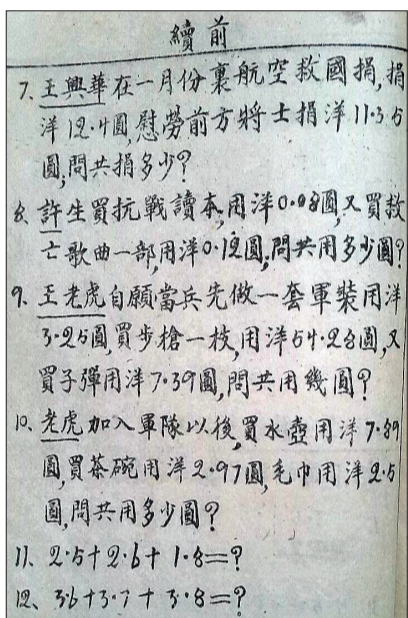 續前
7、王興華在一月份裏航空救國捐,捐
洋12.4圓,慰勞前方將士捐洋11.35
圓,問共捐多少?
8、許生買抗戰讀本,用洋0.08圓,又買救
亡歌曲一部,用洋0.12圓,問共用多少圓?
9、王老虎自願當兵先做一套軍裝用洋
3.25圓,買步槍一枝,用洋54.28圓,又
買子彈用洋7.39圓,問共用幾圓?
10、老虎加入軍隊以後,買水壺用洋7.89
圓,買茶碗用洋2.97圓,毛巾用洋2.5
圓,問共用多少圓?
11、2.5+2.6+1.8=?
12、3.6+3.7+3.8=?